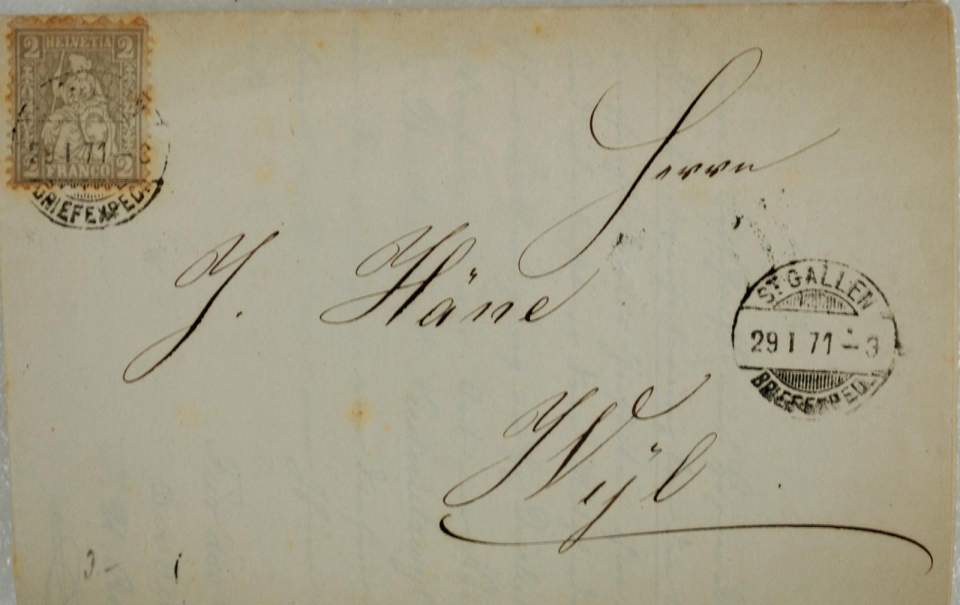 2 HELVETIA 2
29 I 71
2 FRANCO 2
BRIEFEXPED.
Herrn
J. Häne
Wÿl
ST. GALLEN
29 I 71 – 3
BRIEFEXPED.